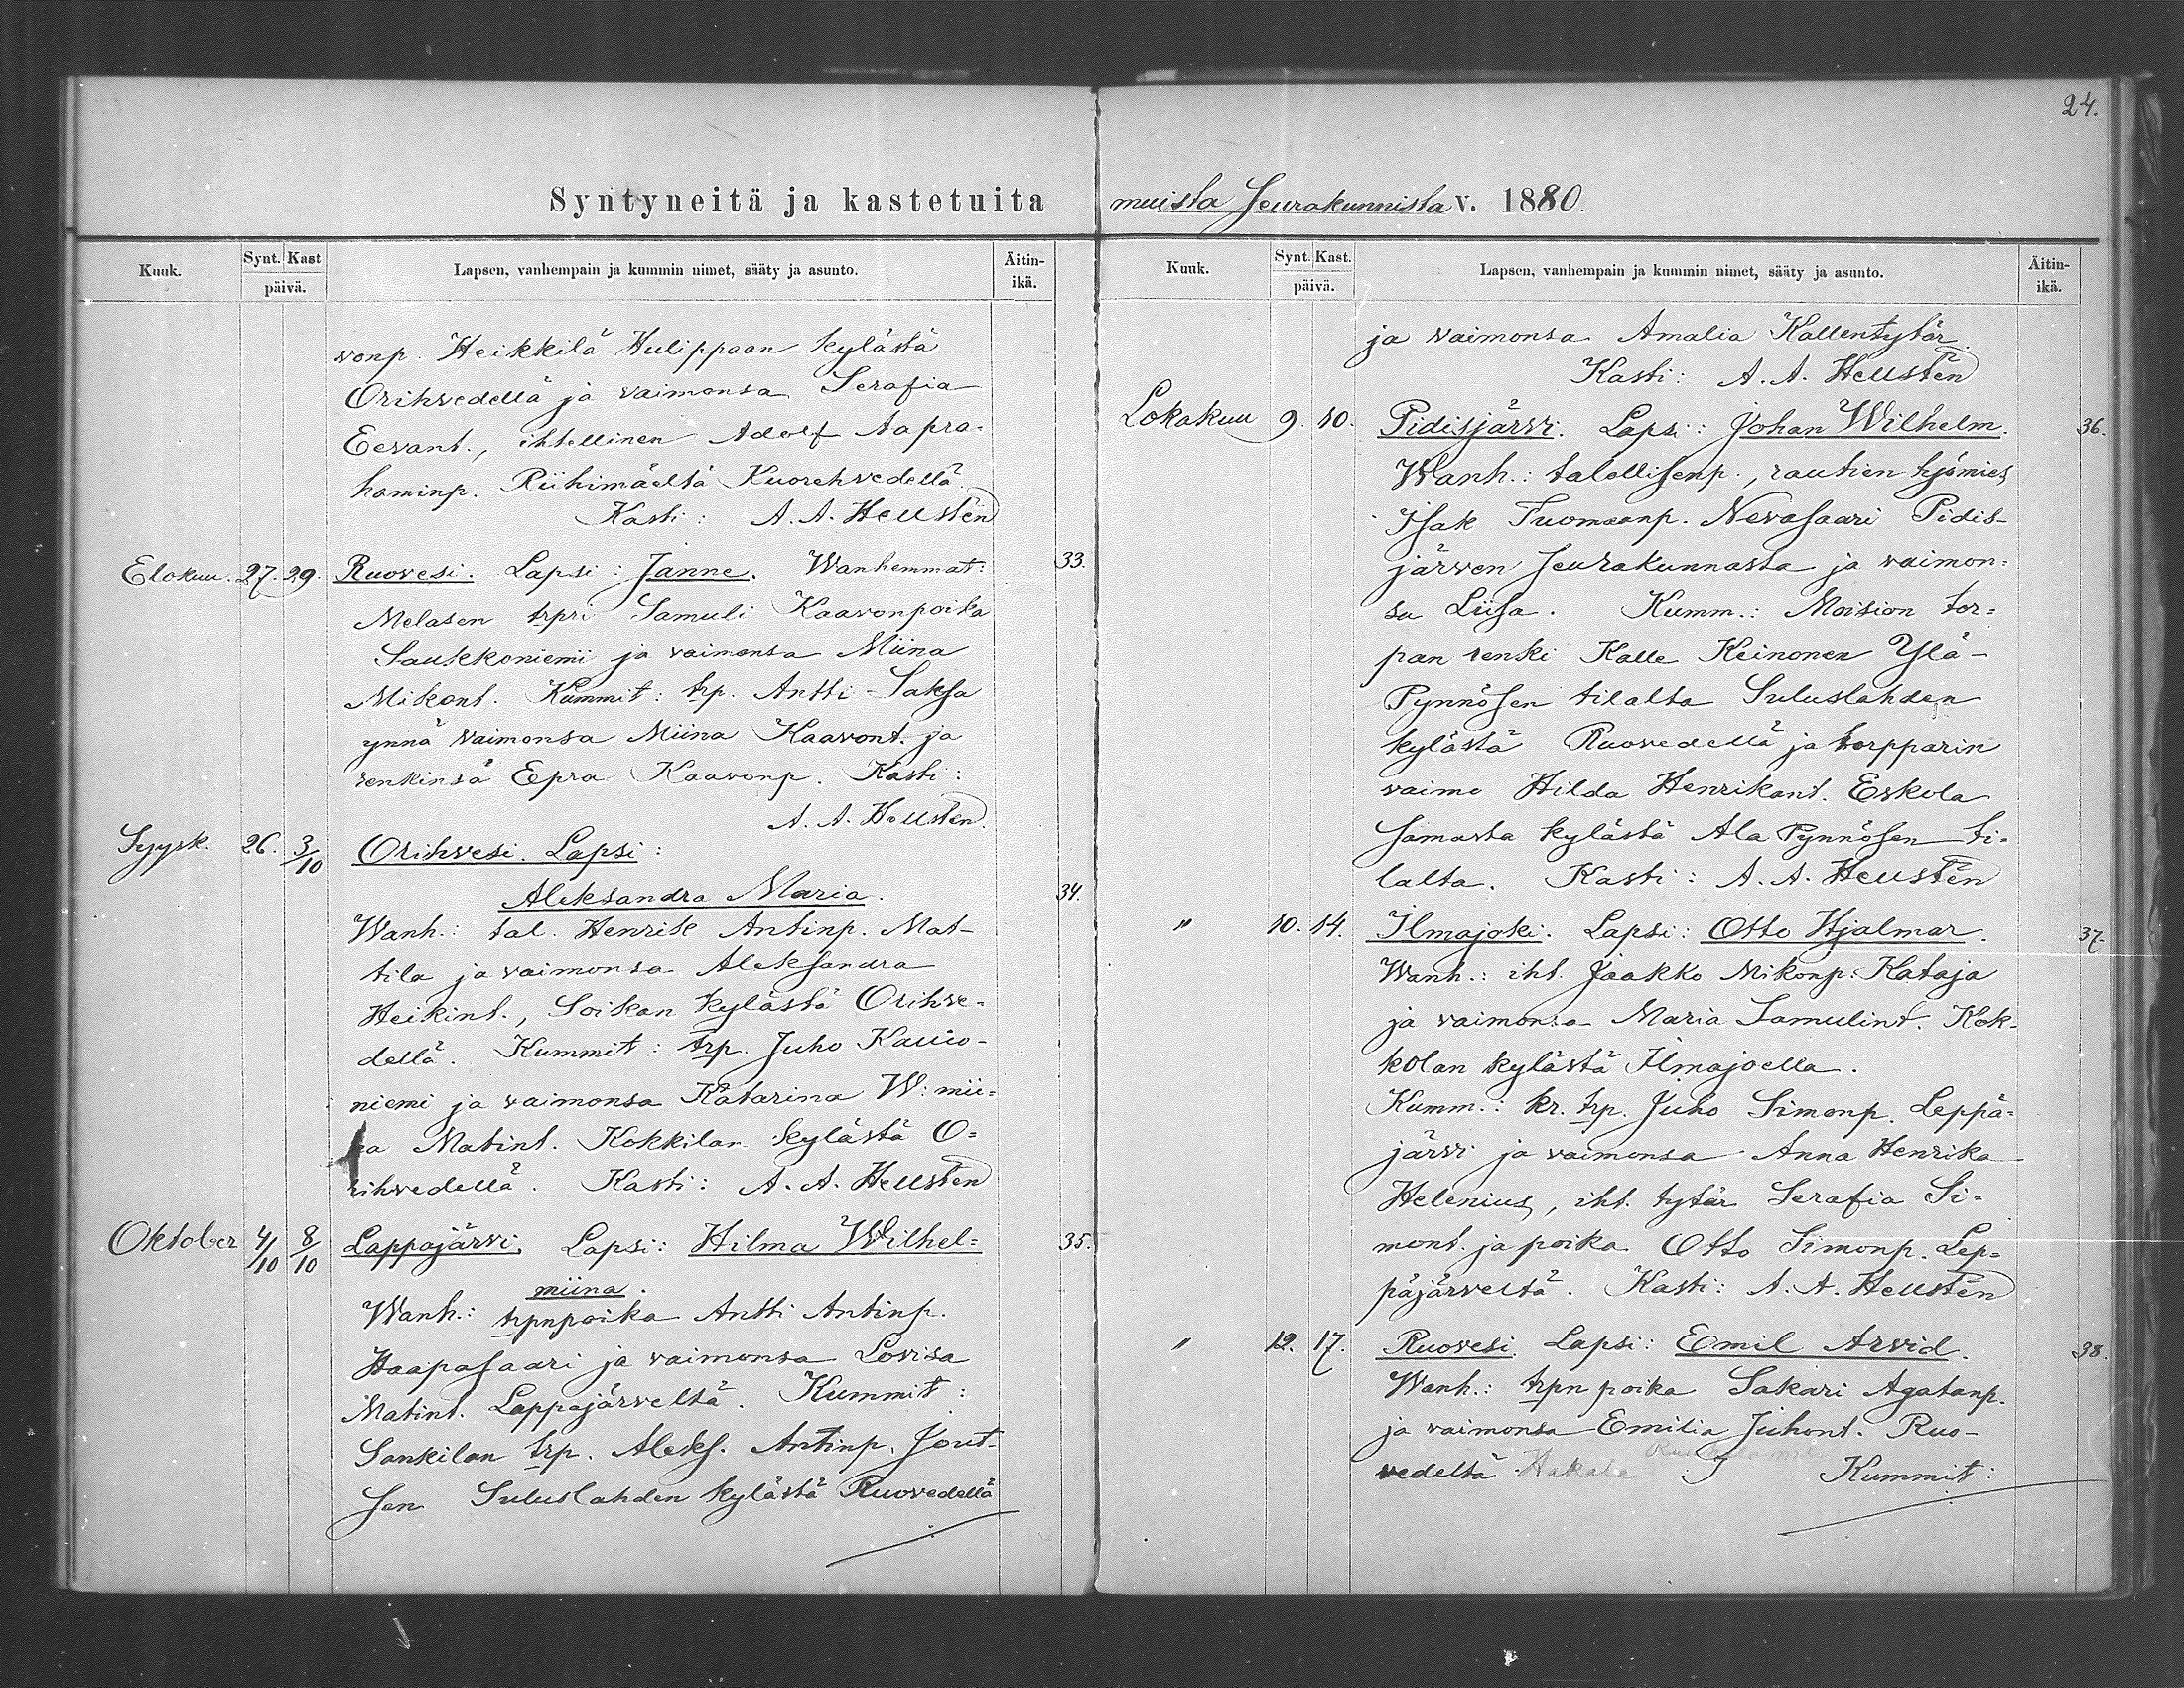 24.
Syntyneitä ja kastetuita muista Seurakunnista v. 1880.
Kuuk. Synt. Kast päivä. Lapsen, vanhempain ja kummin nimet, sääty ja asunto. Äitin-ikä.
vonp. Heikkilä Hulippaan kylästä
Orihvedellä ja vaimonsa Serafia
Eevant., ihtellinen Adolf Aapra-
haminp. Riihimäeltä Kuorehvedellä.
Kasti: A. A. Hellstén
Elokuu. 27. 29. Ruovesi. Lapsi: Janne. Wanhemmat: 33.
Melasen trpri Samuli Kaavonpoika
Saukkoniemi ja vaimonsa Miina
Mikont. Kummit: trp. Antti Saksa
ynnä vaimonsa Miina Kaavont. ja
renkinsä Epra Kaavonp. Kasti:
A. A. Hellstén.
Syysk. 26. 3/10 Orihvesi. Lapsi:
Aleksandra Maria. 34.
Wanh.: tal. Henrik Antinp. Mat-
tila ja vaimonsa Aleksandra
Heikint., Soikan kylästä Orihve-
dellä. Kummit: trp. Juho
niemi ja vaimonsa Katarina W:mii-
na Matint. Kokkilan kylästä O=
rihvedellä. Kasti: A. A. Hellstén
Oktober 4/10 8/10 Lappajärvi. Lapsi: Hilma Wilhel= 35.
miina.
Wanh.: trpnpoika Antti Antinp.
Haapasaari ja vaimonsa Lovisa
Matint. Lappajärveltä. Kummit:
Sankilan trp. Aleks. Antinp. Jout-
sen Suluslahden kylästä Ruovedellä
Kuuk. Synt. Kast. päivä. Lapsen, vanhempain ja kummin nimet, sääty ja asunto. Äitin-ikä.
ja vaimonsa Amalia Kallentytär.
Kasti: A. A. Hellstén
Lokakuu 9. 10. Pidisjärvi. Lapsi: Johan Wilhelm. 36.
Wanh.: talollisenp., rautien työmies
Isak Tuomaanp. Nevasaari Pidis-
järven Seurakunnasta ja vaimon=
sa Liisa. Kumm.: Moision tor=
pan renki Kalle Keinonen Ylä-
Pynnösen tilalta Suluslahden
kylästä Ruovedellä ja torpparin
vaimo Hilda Henrikant. Eskola
samasta kylästä Ala Pynnösen ti-
lalta. Kasti: A. A. Hellstén
" 10. 14. Ilmajoki. Lapsi: Otto Hjalmar. 37.
Wanh.: iht. Jaakko Mikonp. Kataja
ja vaimonsa Maria Samulint. Kok-
kolan kylästä Ilmajoella.
Kumm.: kr. trp. Juho Simonp. Leppä=
järvi ja vaimonsa Anna Henrika
Helenius, iht. tytär Serafia Si-
mont. ja poika Otto Simonp. Lep=
päjärveltä. Kasti: A. A. Hellstén
" 12. 17. Ruovesi. Lapsi: Emil Arvid. 38.
Wanh.: trpn poika Sakari Agatanp.
ja vaimonsa Emilia Juhont. Ruo-
vedeltä Hakala Kummit: